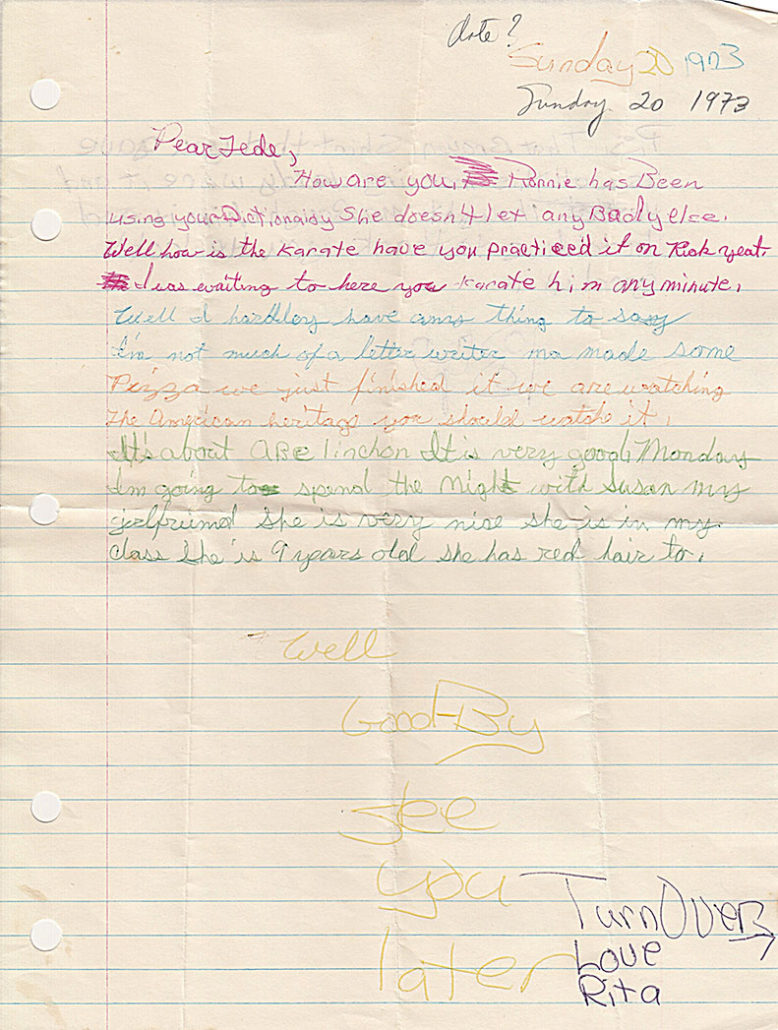 date?
Sunday 20 1973
Sunday 20 1973
Dear Tede,
How are you, Ronnie has Been
using your Dictionaidy She doesn't let any Bady else.
Well how is the karate have you practiced it on Rick yeat.
I was waiting to here you karate him any minute.
Well I hardley have any thing to say
I'm not much of a letter writer ma made some
Pizza we just finished it we are watching
the American heritage you should watch it.
It's about ABE linchon It is very good, Monday
I'm going to spend the night with Susan my
girlfriend She is very nice she is in my
class She is 9 years old she has red hair to.
Well
Good-By
See
you
later
Turn Over
Love
Rita